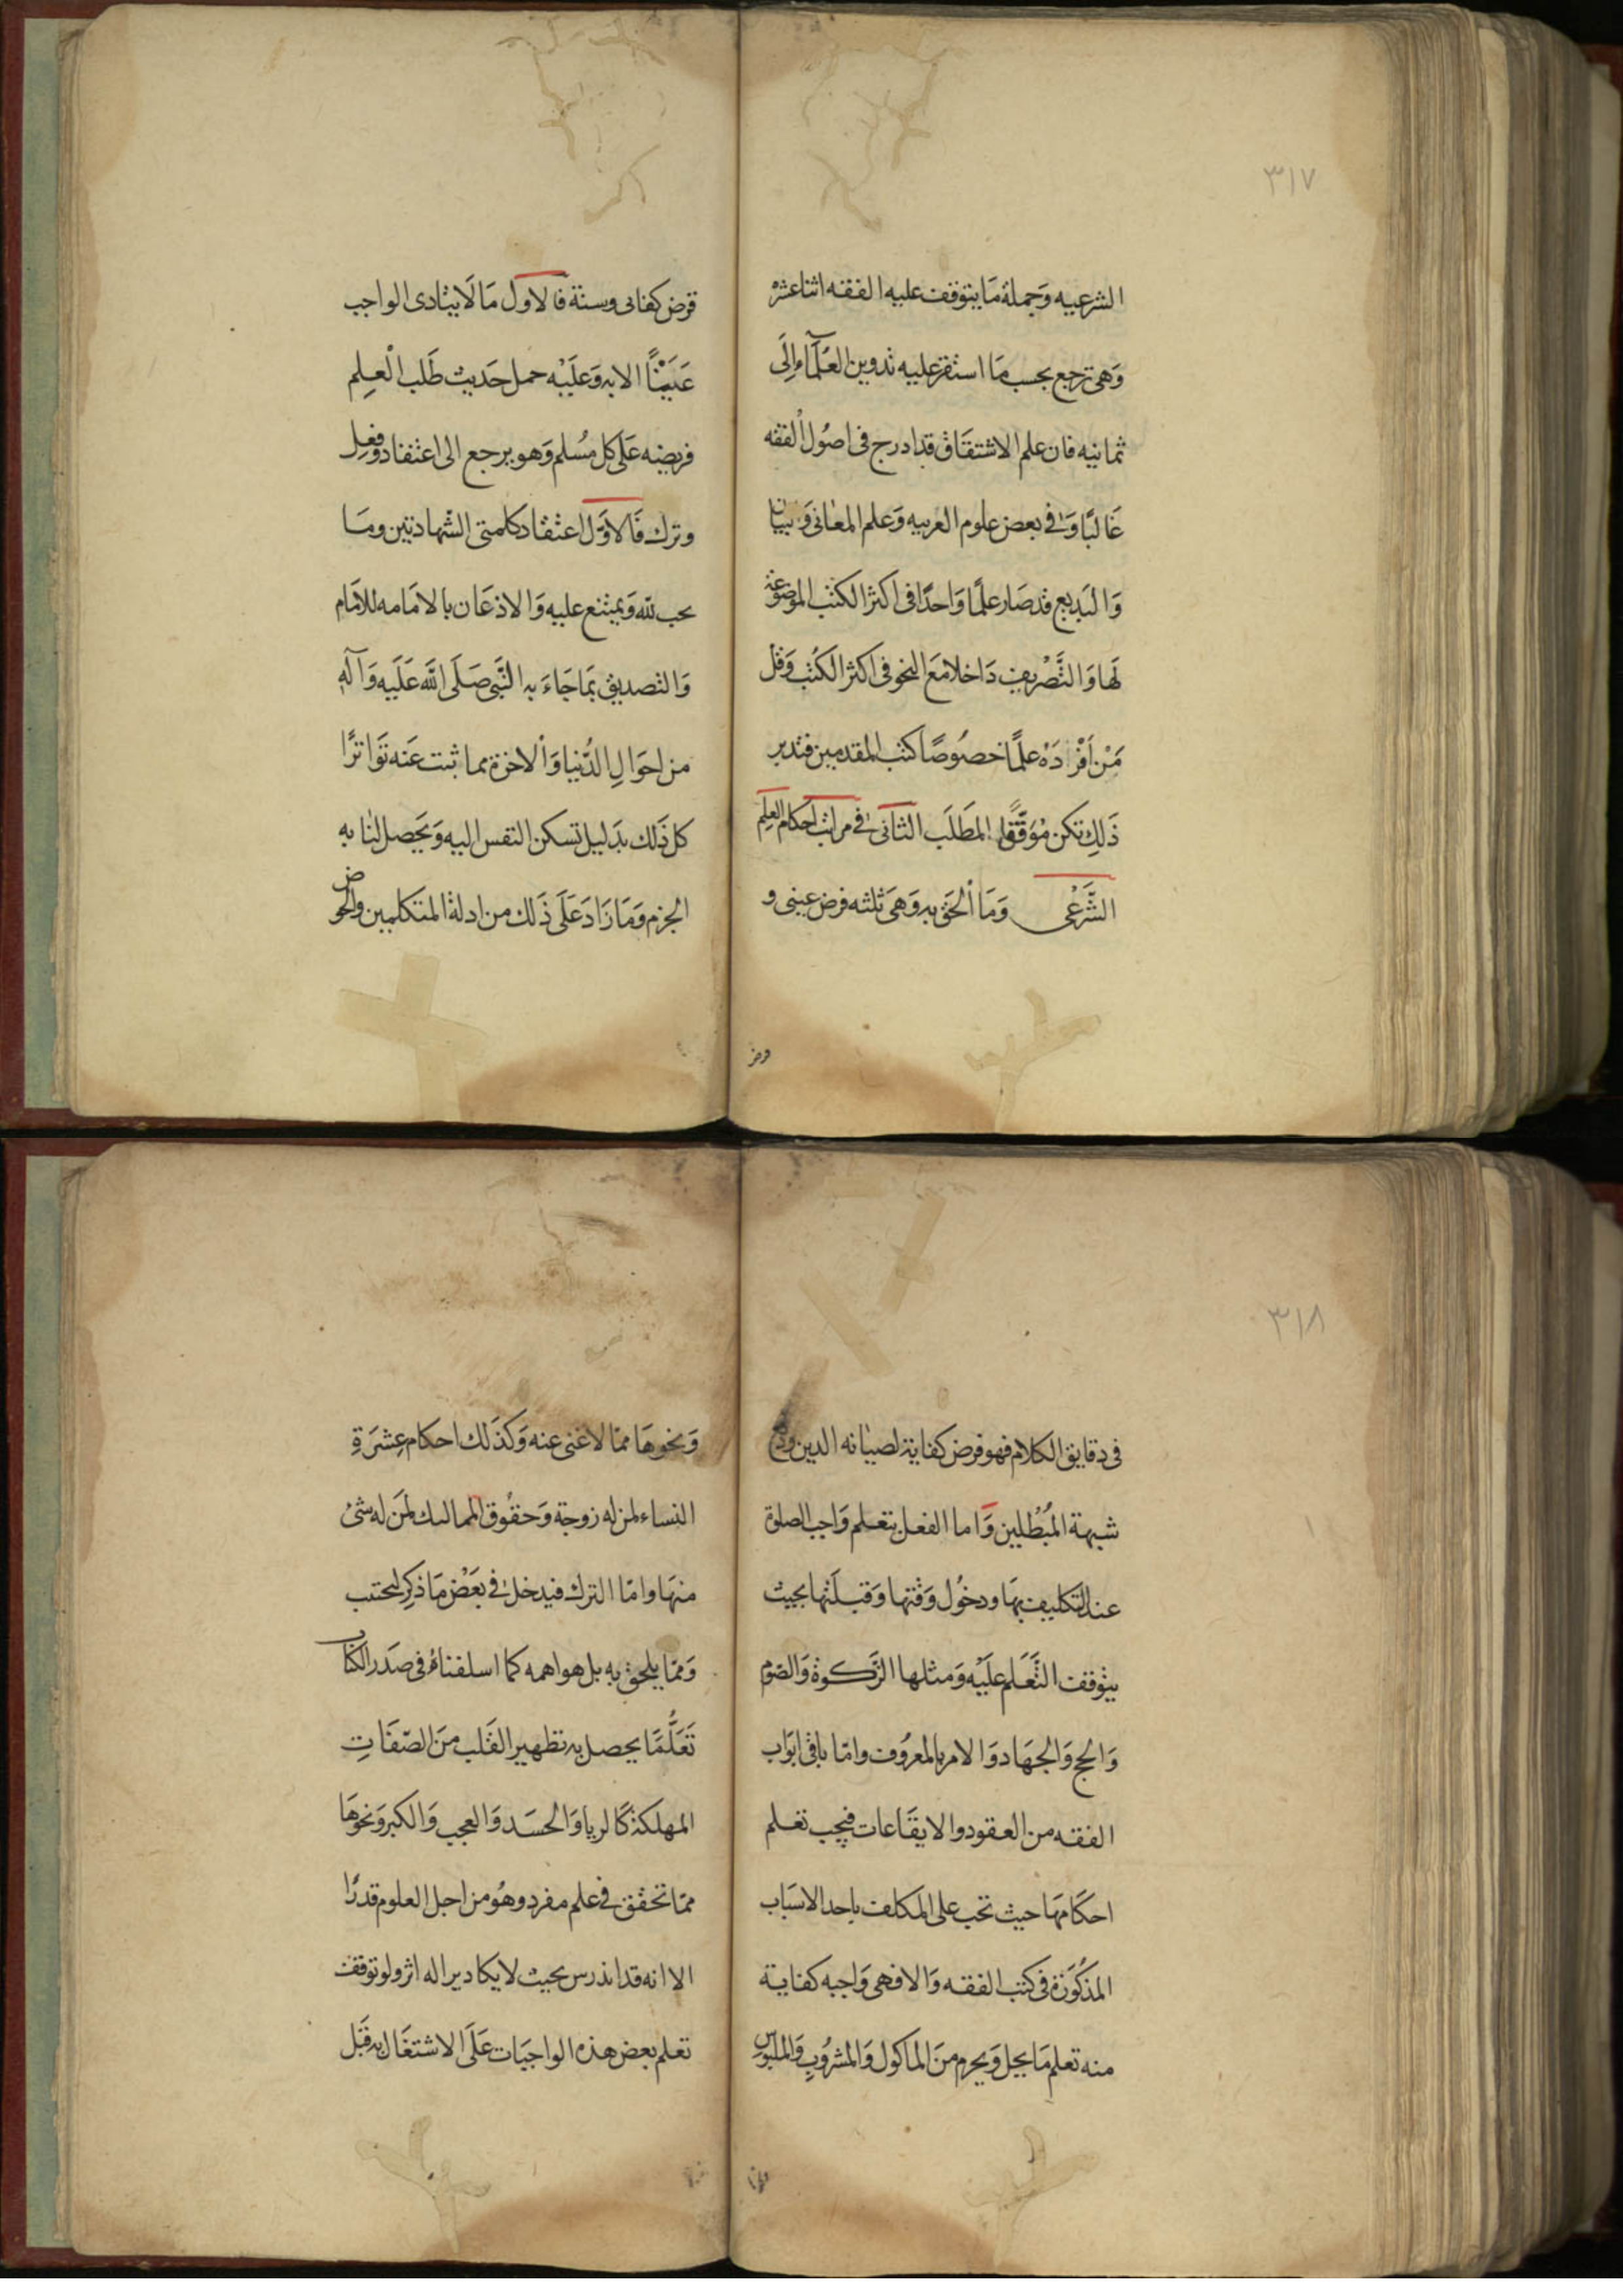 ٣١٧
الشرعيه وَجملة مَا يتوقف عليه الفقه اثنا عشره
وَهى ترجع بحسب مَا استقر عليه تدوين العُلمآء اِلَى
ثمانيه فان علم الاشتقاق قد ادرج فى اصُول الفقه
غَالبًا وَفى بعض علوم العربيه وَعلم المعانى وَبيان
وَالبَديع قد صَار علمًا وَاحدًا فى اكثر الكتب الموضوعة
لَها وَالتَّصْريف دَاخلا مَعَ النحو فى اكثر الكتُب وَقل
مَنْ اَفْرَدَهْ علمًا خصُوصًا كتب المقدمين فتدبر
ذَلِك تكن مُوَفَّقًا المَطلَب الثانى فى مراتب احكام العلم
الشَّرْعى وَمَا اُلحق به وَهى ثلثه فرض عينى و
فرض
فرض كفائى وسنة فالاول مَا لَا يتادى الواجب
عَيْنًا الا به وَعَلَيْه حمل حَديث طَلب الْعلمِ
فريضه عَلَى كل مُسلم وَهو يرجع الى اعتقاد وفعل
وترك فَالاوَّل اعتقاد كلمتى الشهادتين ومَا
يجب لله وَيمتنع عليه وَالاذعَان بالامَامه للامَام
وَالتصديق بمَا جَاءَ به النَّبى صَلَى اللَّه عَلَيه وَآله
من احوَالِ الدُّنيا وَالاخرة مما ثبت عَنه تَوَاترًا
كل ذَلك بدَليل تسكن النفس اليه وَيَحصل لنا به
الجزم وَمَا زَادَ عَلَى ذَلك من ادلة المتكلمين والخوض
٣١٨
فى دقايق الكلام فهو فرض كفاية لصيانه الدين ودفع
شبهة المُبْطلين وَاما الفعل بتعلم وَاجب الصلوة
عند التكليف بهَا ودخُول وَقتها وَقبلَتها بحيث
يتوقف التَّعَلم عَلَيْه وَمثلها الزَّكوة وَالصَّوم
وَالحج وَالجهَاد وَالامر بالمعرُوف وامّا باقى ابوَاب
الفقه من العقود والايقَاعات فيجب تعلم
احكَامهَا حيث تجب على المكلف باحد الاسبَاب
المذكُورَة فى كتب الفقه وَالا فهى وَاجبه كفاية
منه تعلم مَا يحل وَيحرم منَ الماكول وَالمشرُوب وَالملبوس
وَنحوهَا ممّا لا غنى عنه وَكذَلك احكام عِشرَةِ
النساء لمن له زوجة وَحقُوق المماليك لمَن له شئ
منهَا وامّا الترك فيدخل فى بعَض مَا ذكِر لتجتنب
وَممّا يلحق به بل هو اهمه كما اسلفناهُ فى صَدر الكتاب
تَعَلُّم مَا يحصل به تطهير القَلب منَ الصّفَاتِ
المهلكة كَالريا وَالحسَد وَالعجب وَالكبر وَنحوهَا
ممّا تحقق فى علم مفرد وهُو من اجل العلوم قدرًا
الا انه قد اندرس بحيث لا يكاد يرا له اثر ولو توقف
تعلم بعض هذه الواجبَات عَلَى الاشتغَال به قبَل